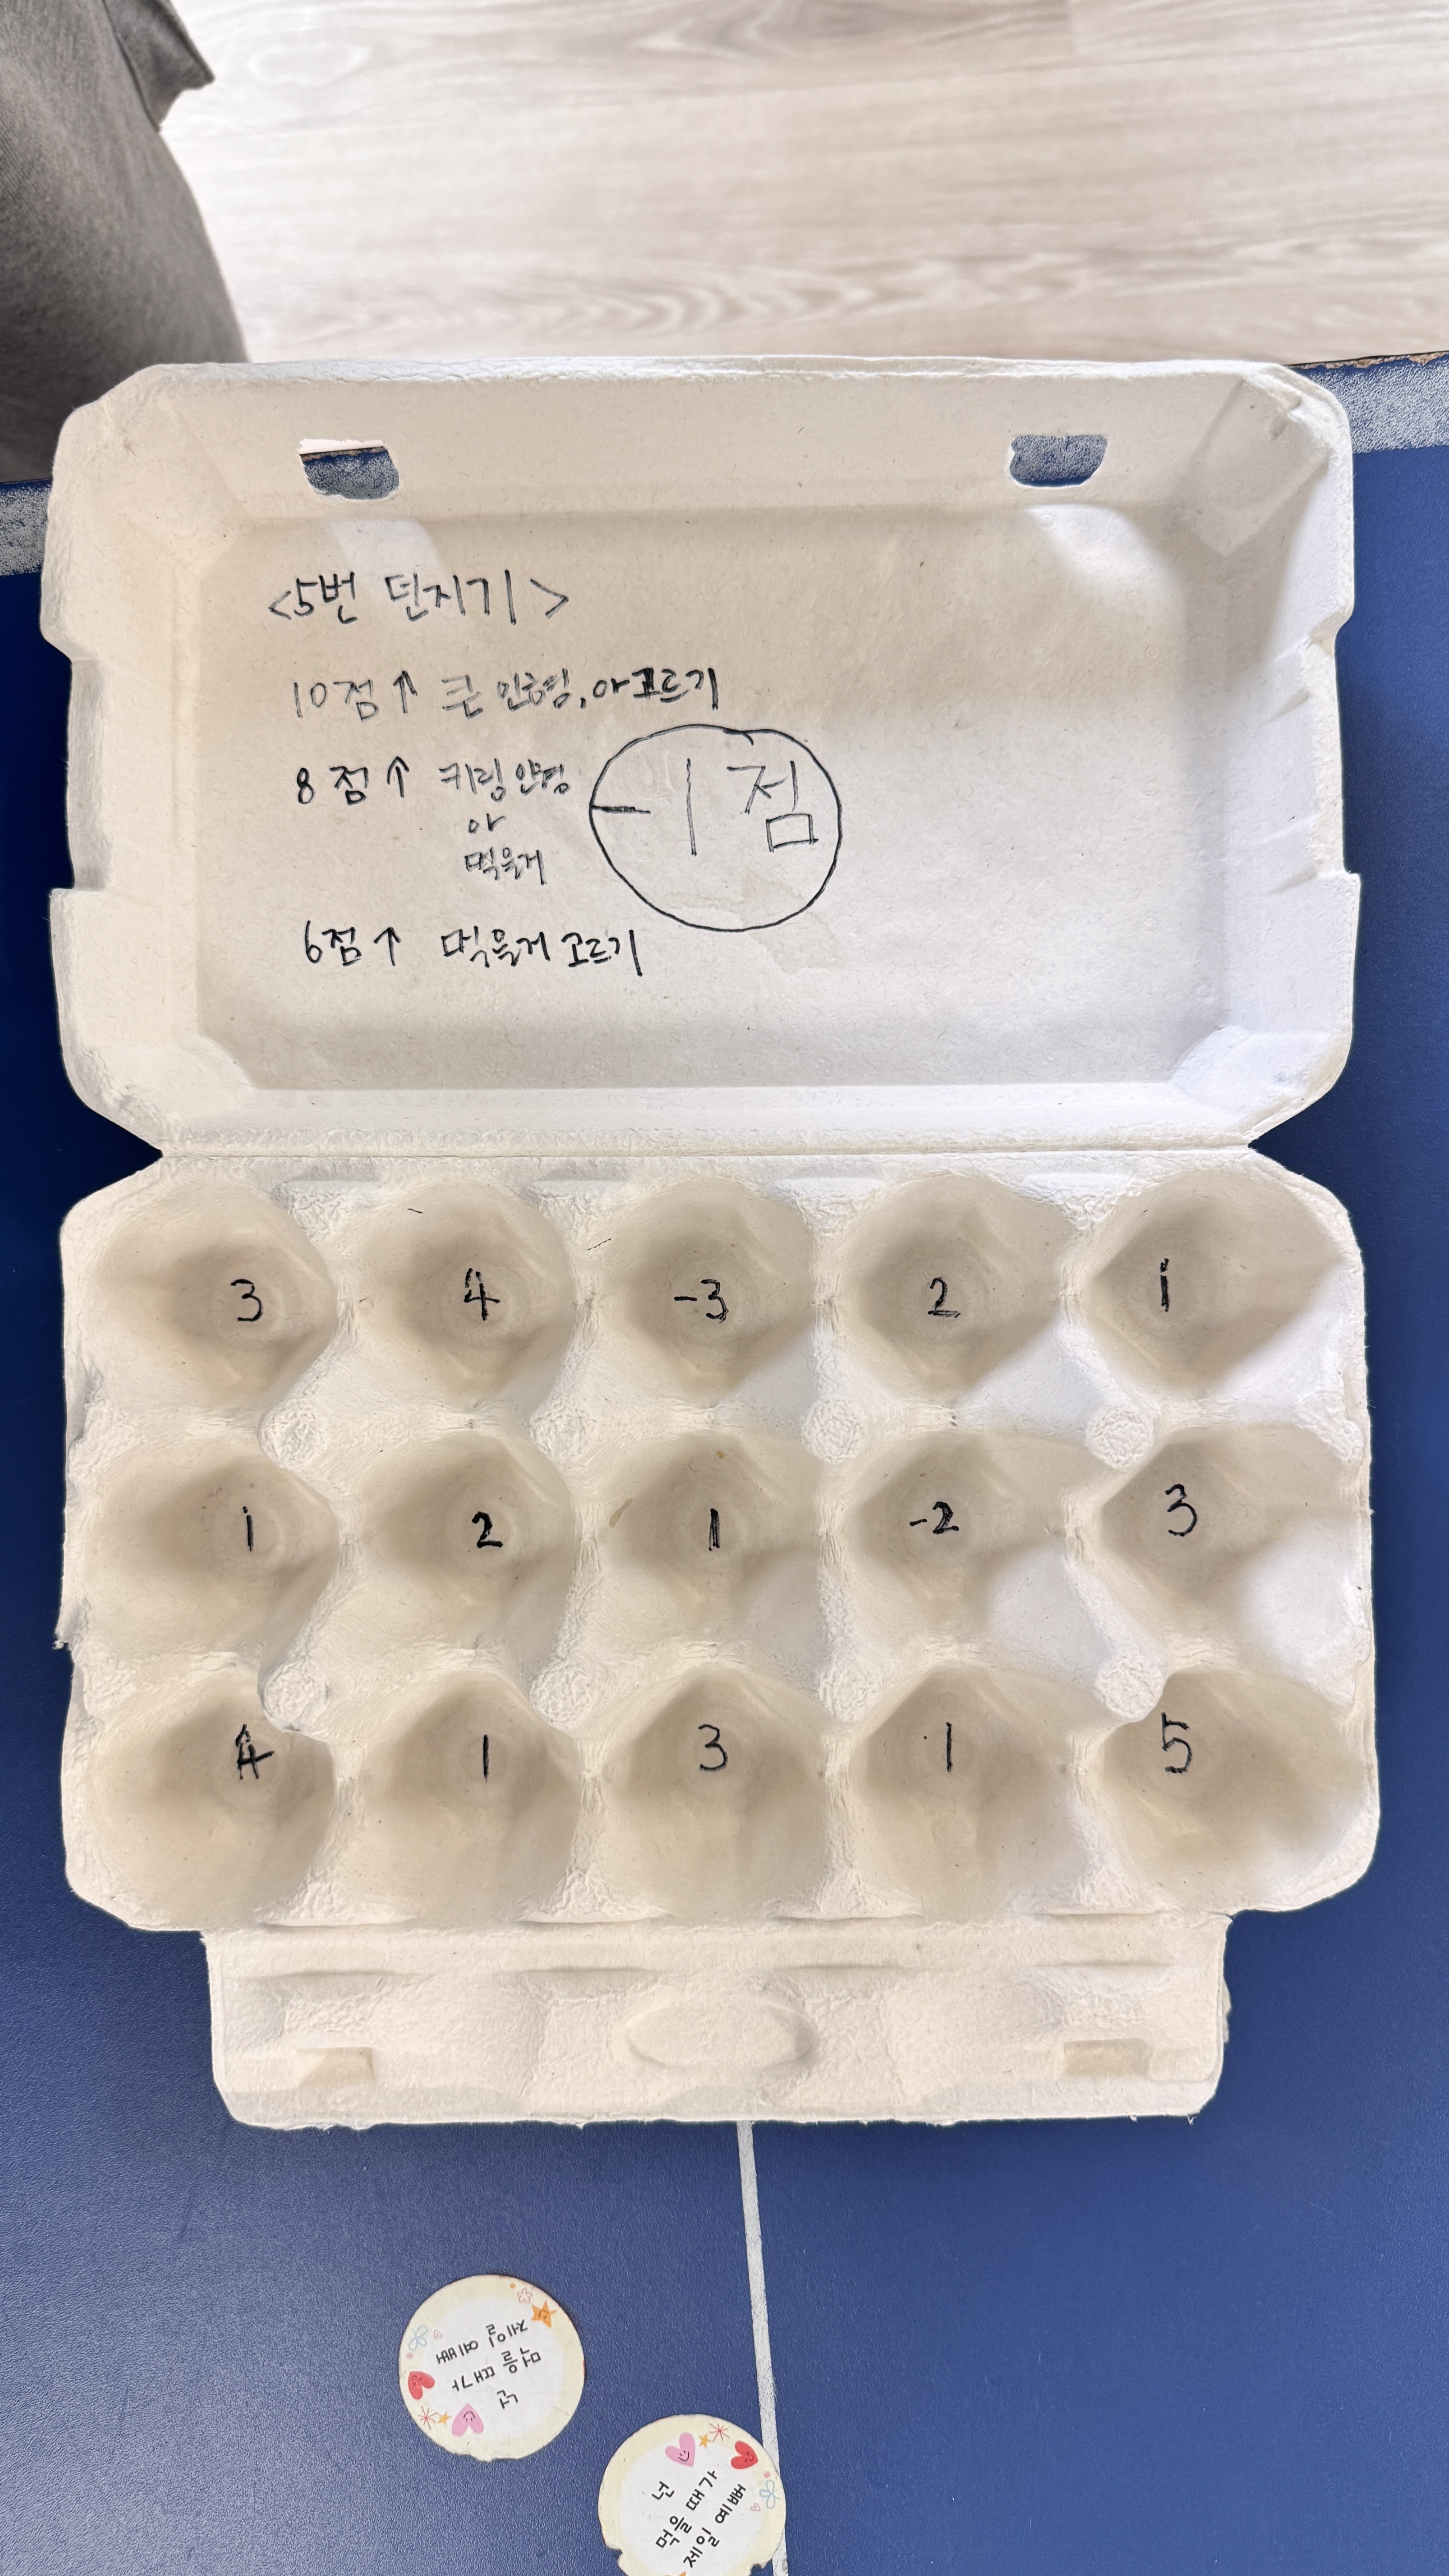 <5번 던지기>
10점↑ 큰 인형, 아 고르기
8점↑ 키링 인형
아
먹을게
-1점
6점↑ 먹을게 고르기
3 4 -3 2 1
1 2 1 -2 3
4 1 3 1 5
넌
먹을 때가
제일 예뻐
넌
먹을 때가
제일 예뻐